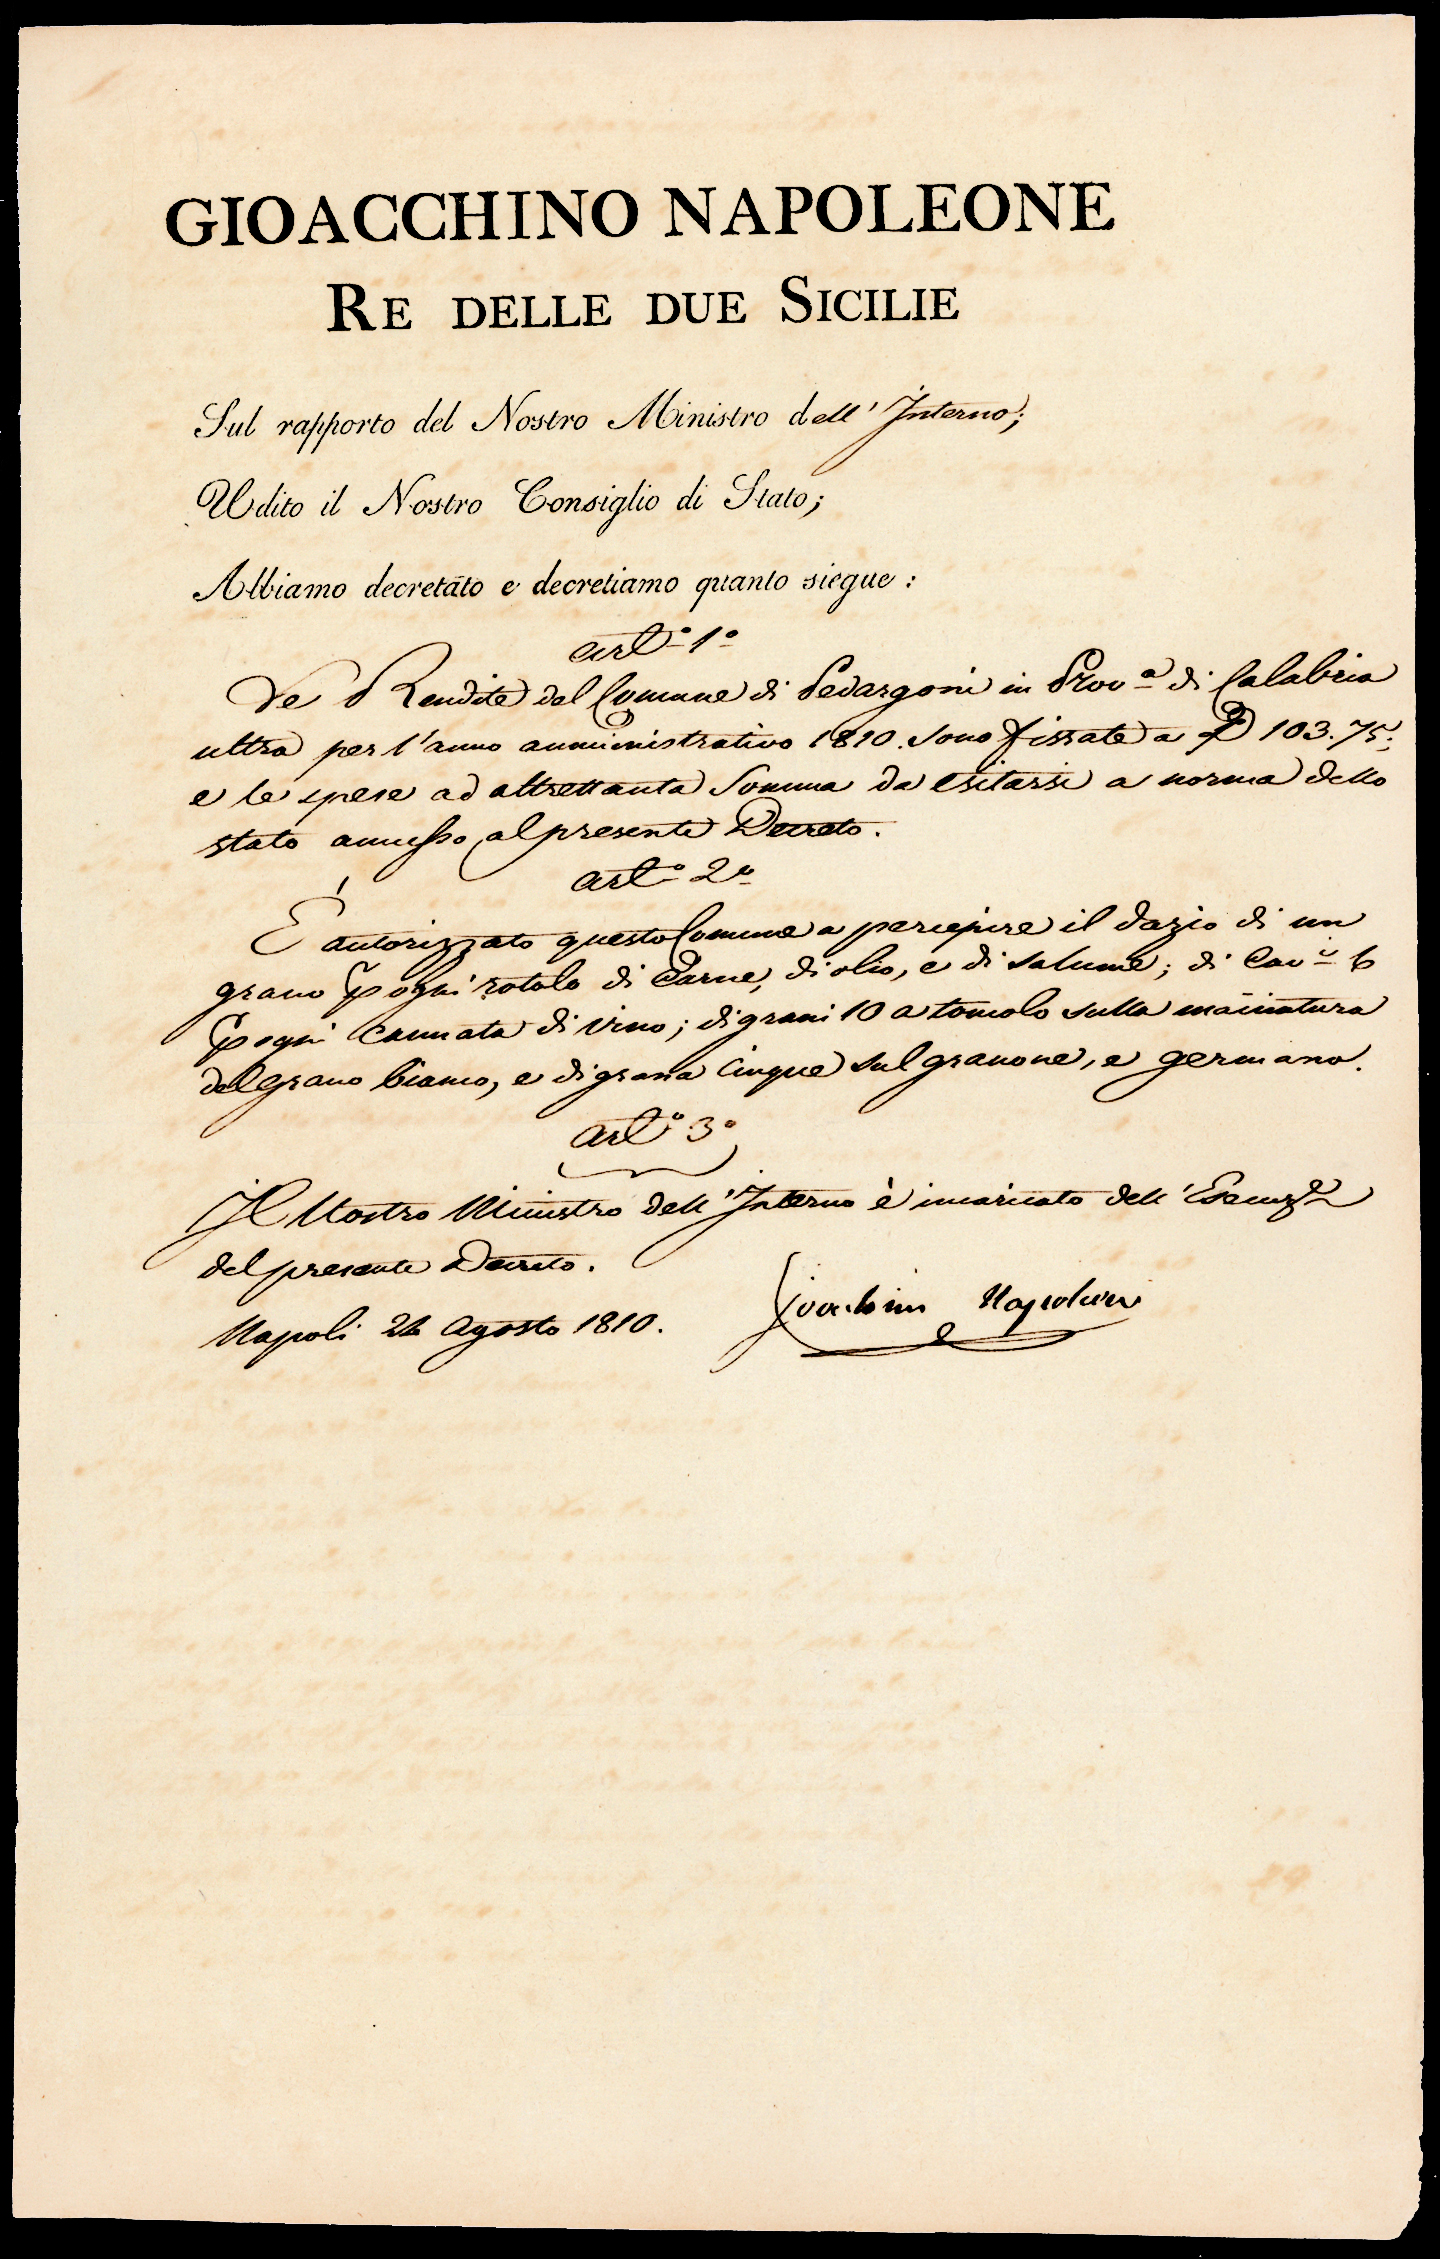 GIOACCHINO NAPOLEONE
RE DELLE DUE SICILIE
Sul rapporto del Nostro Ministro dell' Interno;
Udito il Nostro Consiglio di Stato;
Abbiamo decretato e decretiamo quanto siegue:
art.º 1º
Le Rendite del Comune di Pedargoni in Prov.ª di Calabria
ultra per l'anno amministrativo 1810. sono fissate a D 103.75;
e le spese ad altrettanta somma da esitarsi a norma dello
stato annesso al presente Decreto.
art.º 2º
É autorizzato questo Comune a percepire il dazio di un
grano p ogni rotolo di Carne, di olio, e di salume; di Cav.i 6
p ogni Cannata di vino; di grani 10 a tomolo sulla macinatura
del grano bianco, e di grana Cinque sul granone, e germano.
art.º 3º
Il Nostro Ministro dell' Interno è incaricato dell'
del presente Decreto.
Napoli Agosto 1810. Gioachim Napoleon